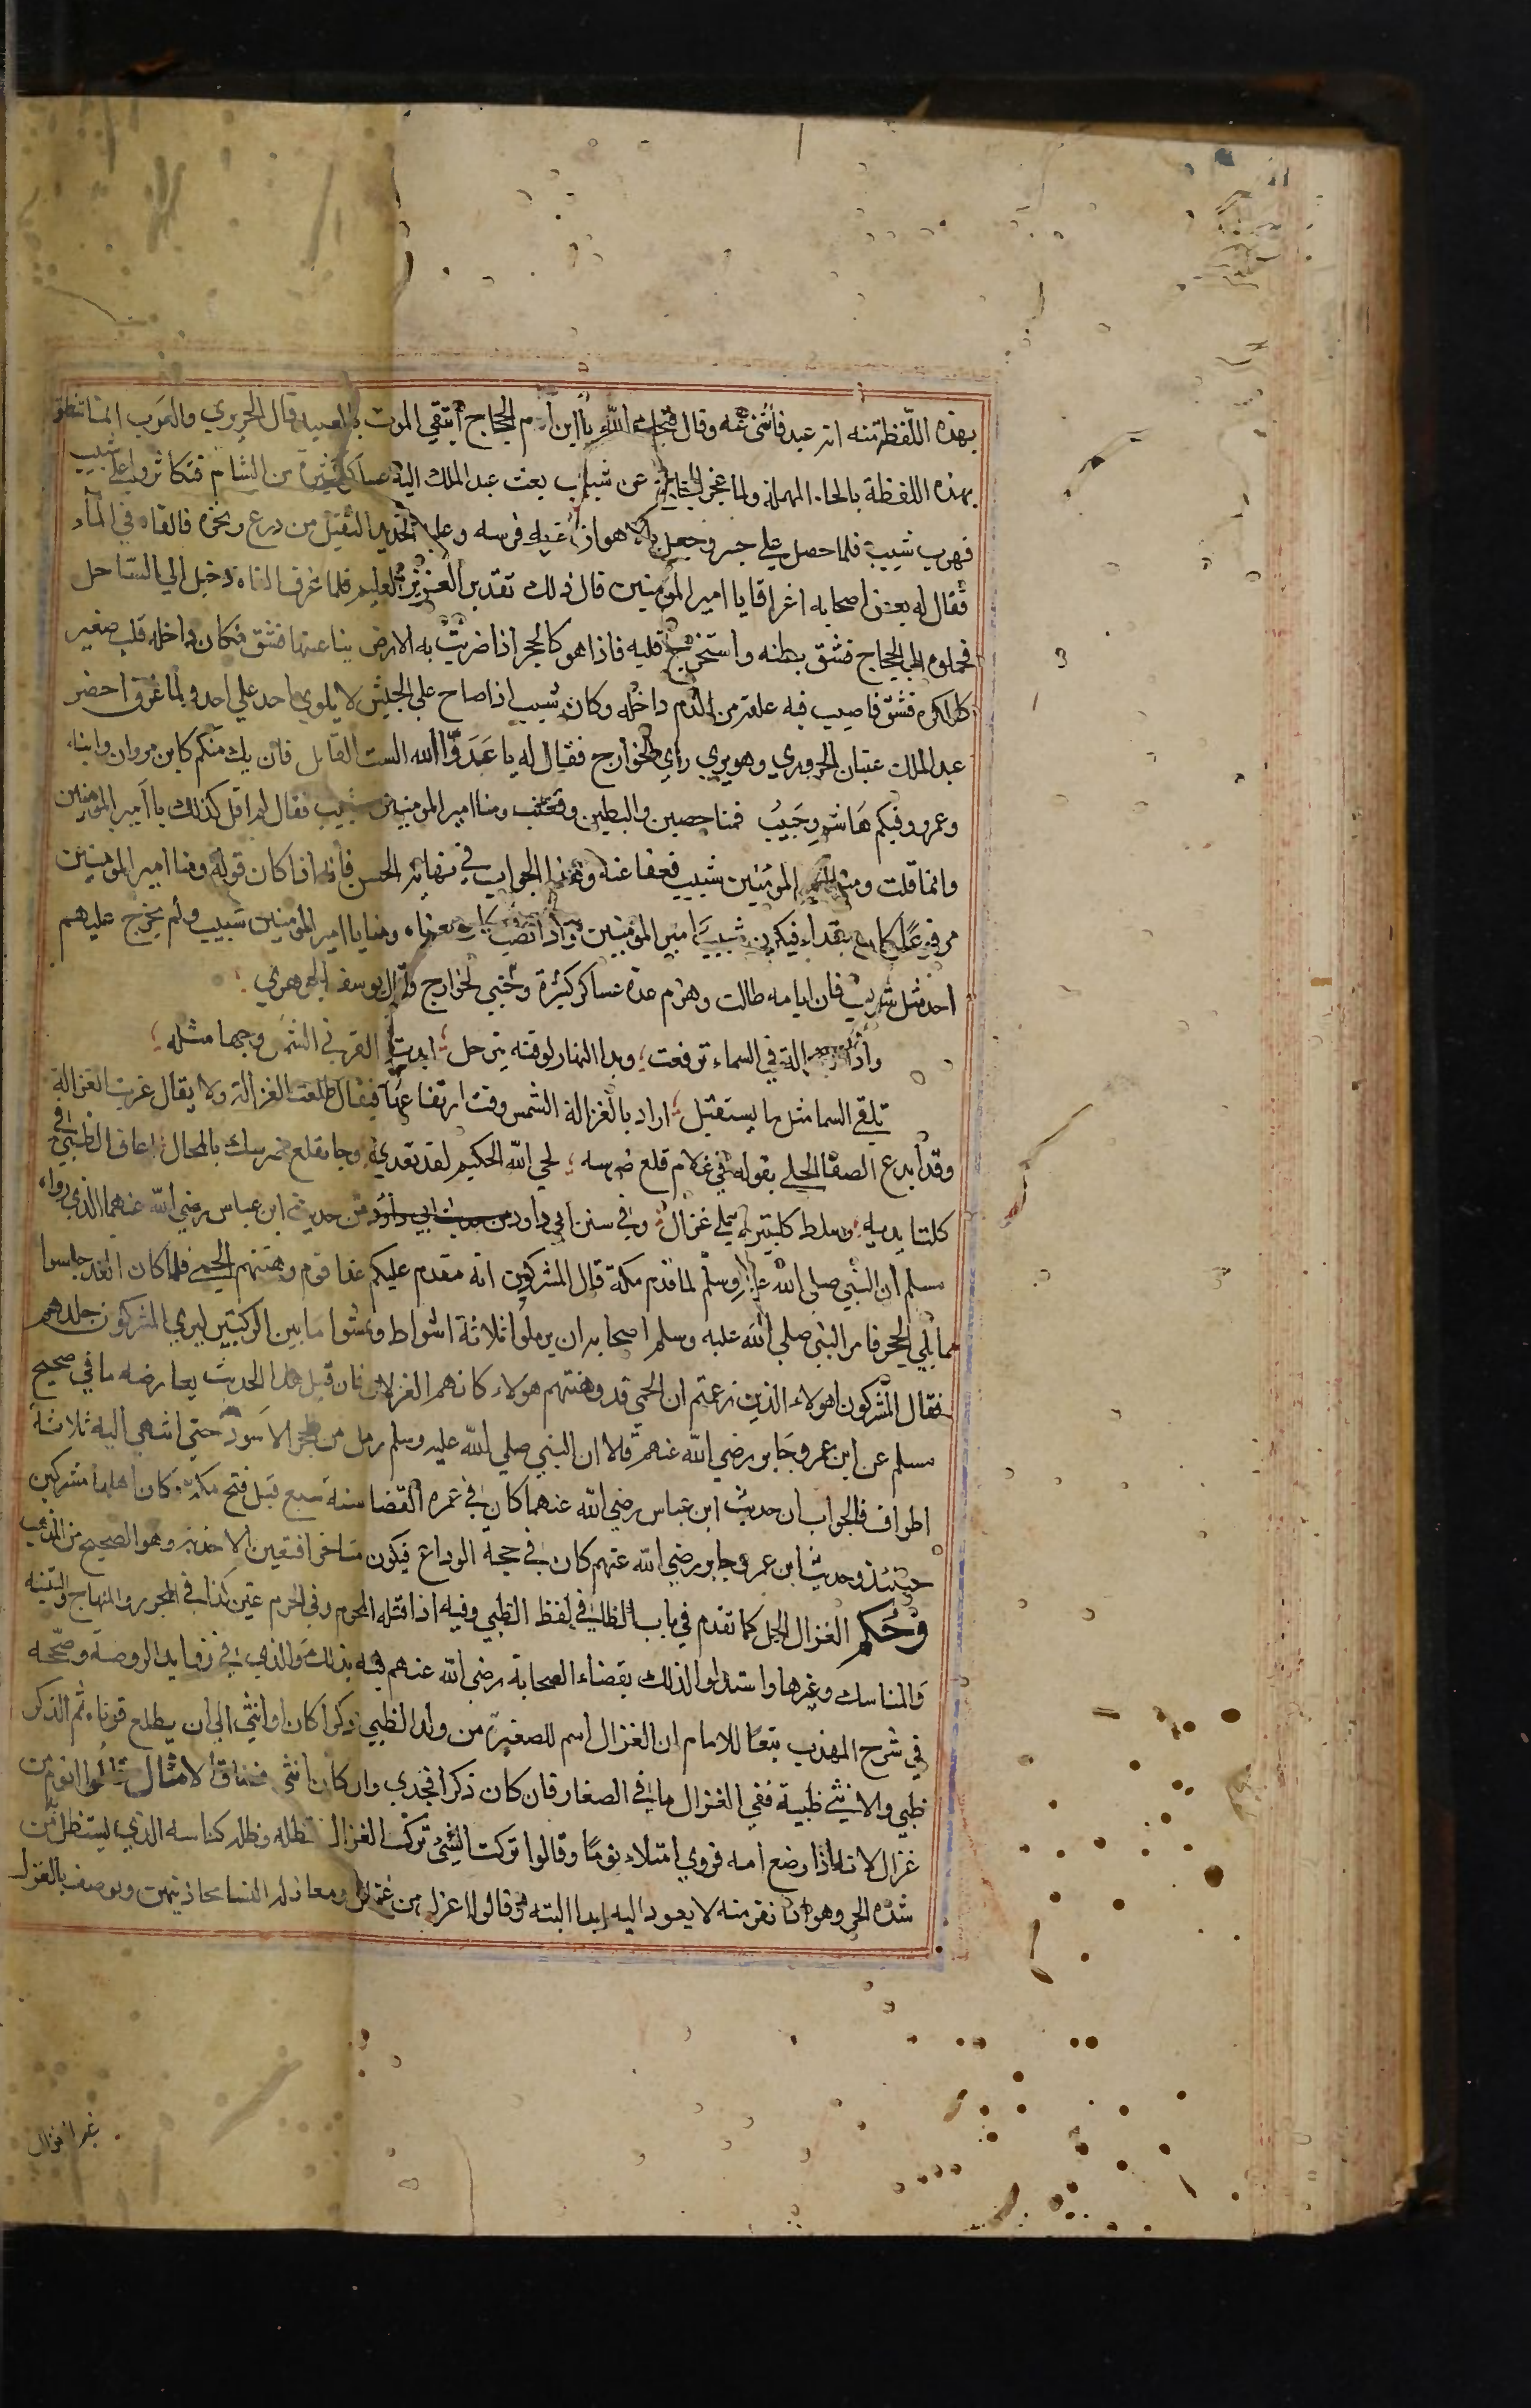 بهذه اللفظة منه انه عبد فأنثنى عنه وقال قبحك الله يا ابن أم الحجاج أيتقي الموت بالعبيد قال الحريري والعرب انما تنطق
بهذه اللفظة بالحاء المهملة ولما عجز الحجاج عن شبيب بعث عبد الملك اليه عساكر كثيرة من الشام فتكاثروا على شبيب
فهرب شبيب فلما حصل على جسر دجيل بالاهواز نفر به فرسه وعليه الحديد الثقيل من درع وغيره فالقاه في الماء
فقال له بعض اصحابه اغراقا يا امير المؤمنين قال ذلك تقدير العزيز العليم فلما غرق القاه دجيل الى الساحل
فحملوه الى الحجاج فشق بطنه واستخرج قلبه فاذا هو كالحجر اذا ضربت به الارض ينبا عنها فشق فكان داخله قلب صغير
كالكره فشق فاصيب فيه علقة من الدم داخله وكان شبيب اذا صاح على الجيش لا يلوي احد على احد ولما غرق احضر
عبد الملك عتبان الحروري وهو يري راي الخوارج فقال له يا عدو الله الست القايل فان يك منكم كابن مروان وابنه
وعمرو وفيكم هاشم وحبيب فمنا حصين والبطين وقعنب ومنا امير المومنين شبيب فقال لم اقل كذلك يا امير المؤمنين
وانما قلت ومنا امير المؤمنين شبيب فعفا عنه وهذا الجواب في نهاية الحسن فانه اذا كان قوله ومنا امير المومنين
مرفوعا كان مبتداء فيكون شبيب امير المؤمنين واذا نصب كان معناه ومنا يا امير المؤمنين شبيب ولم يخرج عليهم
احد مثل شبيب فان ايامه طالت وهزم عدة عساكر كثيرة وجبي الخراج وقال يوسف الجوهري
واذا الغزالة في السماء ترفعت وبدا النهار لوقته يترحل ابدت القرن الشمس وجها مثله
تلقي السما مثل ما يستقبل اراد بالغزالة الشمس وقت ارتفاعها فيقال طلعت الغزالة ولا يقال غربت الغزالة
وقد ابدع الصفي الحلي بقوله في غلام قلع ضرسه لحي الله الحكيم لقد تعدي وجا بقلع ضرسك بالمحال اعاق الظبي في
كلتا يديه وسلط كلبتين على غزال وفي سنن ابي داود من حديث ابن عباس رضي الله عنهما الذي رواه
مسلم ان النبي صلى الله عليه وسلم لما قدم مكة قال المشركون انه مقدم عليكم غدا قوم وهنتهم الحمى فلما كان الغد جلسوا
مما يلي الحجر فامر النبي صلى الله عليه وسلم اصحابه ان يرملوا ثلاثة اشواط ويمشوا ما بين الركنين ليري المشركون جلدهم
فقال المشركون اهولاء الذين زعمتم ان الحمي قد وهنتهم هولاء كانهم الغزلان فان قيل هذا الحديث يعارضه ما في صحيح
مسلم عن ابن عمر وجابر رضي الله عنهم قالا ان النبي صلى الله عليه وسلم رمل من الحجر الاسود حتي انتهي اليه ثلاثة
اطواف فالجواب ان حديث ابن عباس رضي الله عنهما كان في عمره القضا سنة سبع قبل فتح مكة وكان اهلها مشركين
حينئذ وحديث ابن عمر وجابر رضي الله عنهم كان في حجة الوداع فيكون متاخرا فتعين الاخذ به وهو الصحيح من المذهب
وحكم الغزال الحل كما تقدم في باب الظاء في لفظ الظبي وفيه اذا قتله المحرم وفي الحرم عنز كذا في المحرر والمنهاج والتنبيه
والمناسك وغيرها واستدلوا لذلك بقضاء الصحابة رضي الله عنهم فيه بذلك والذي في زوايد الروضة وصححه
في شرح المهذب تبعا للامام ان الغزال اسم للصغير من ولد الظبي ذكرا كان او انثى الي ان يطلع قرناه ثم الذكر
ظبي والانثى ظبية ففي الغزال ما في الصغار فان كان ذكرا فجدي وان كان انثى فعناق الامثال قالوا انوم من
غزال لانه اذا رضع امه فروي امتلاء نوما وقالوا تركت الشيء ترك الغزال لظله وظله كناسه الذي يستظل من
شده الحر وهو اذا نفر منه لا يعود اليه ابدا البته وقالوا اغزل من غزال ومغازلة النسا محادثتهن ويوصف بالغزل